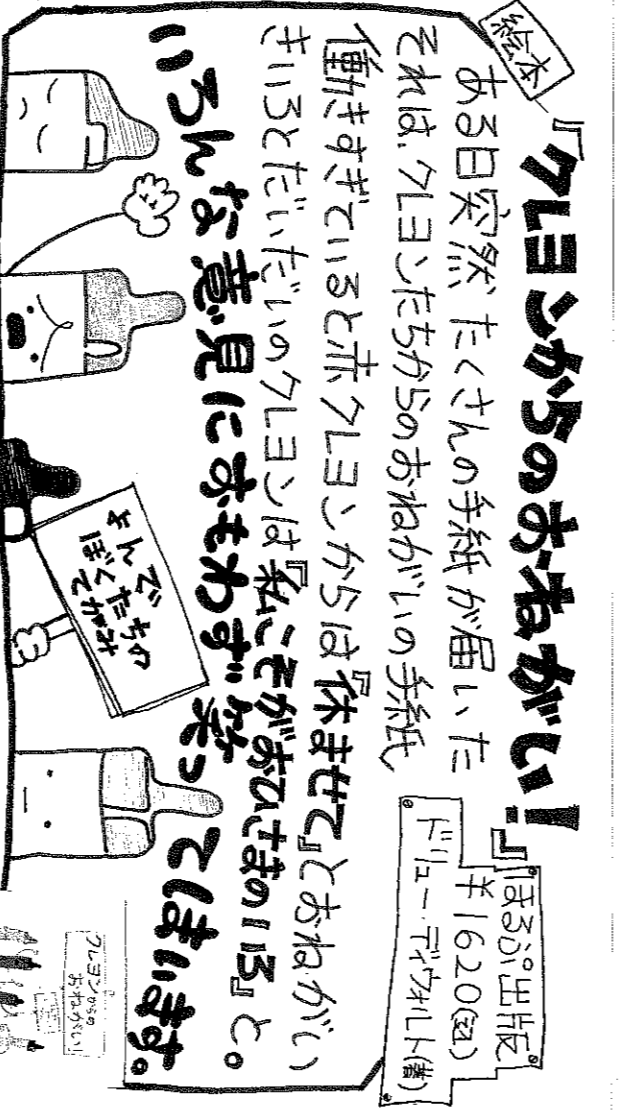 絵本
『クレヨンからのおねがい！』
ほるぷ出版
¥1620(税)
ドリュー・デイウォルト(著)
ある日突然たくさんの手紙が届いた
それは、クレヨンたちからのおねがいの手紙
働きすぎていると赤クレヨンからは『休ませて』とおねがい
きいろとだいだいのクレヨンは『私こそがおひさまのいろ』と。
いろんな意見におもわず笑ってしまいます。
よんで
ぼくたちの
てがみ
クレヨンからの
おねがい！